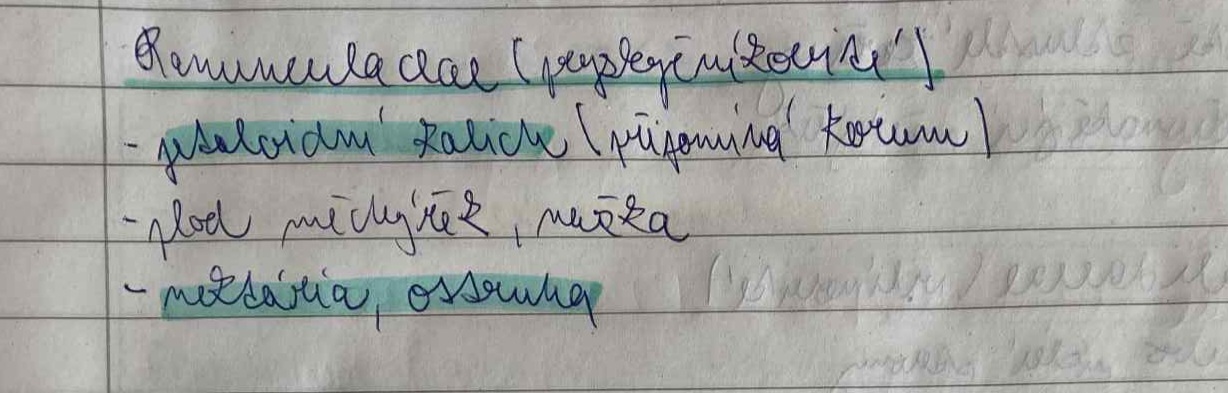 Ranunculaceae (pryskyřníkovité)
- petaloidní kalich (připomíná korunu)
- plod měchýřek, nažka
- nektária, ostruha